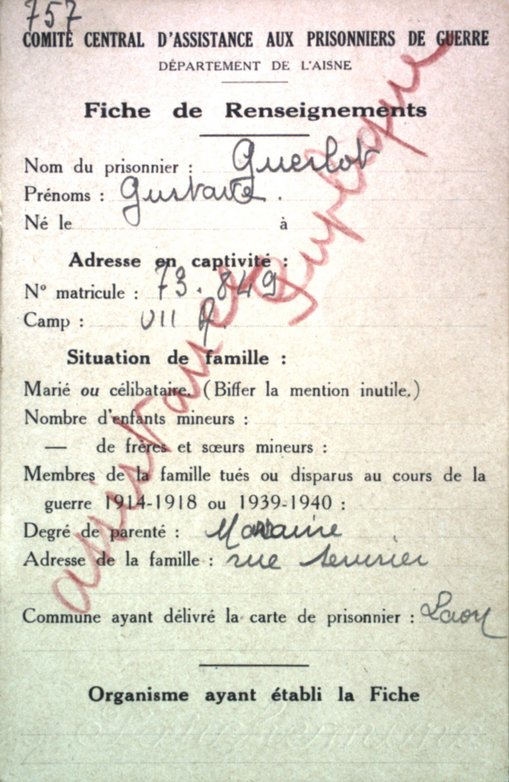 757
COMITÉ CENTRAL D'ASSISTANCE AUX PRISONNIERS DE GUERRE
DÉPARTEMENT DE L'AISNE
Fiche de Renseignements
Nom du prisonnier : Guerlot
Prénoms : Gustave.
Né le à
Adresse en captivité :
N° matricule : 73.849
Camp : VII A
Situation de famille :
Marié ou célibataire. (Biffer la mention inutile.)
Nombre d'enfants mineurs :
— de frères et sœurs mineurs :
Membres de la famille tués ou disparus au cours de la
guerre 1914-1918 ou 1939-1940 :
Degré de parenté : Marraine
Adresse de la famille : rue
Commune ayant délivré la carte de prisonnier : Laon
Organisme ayant établi la Fiche